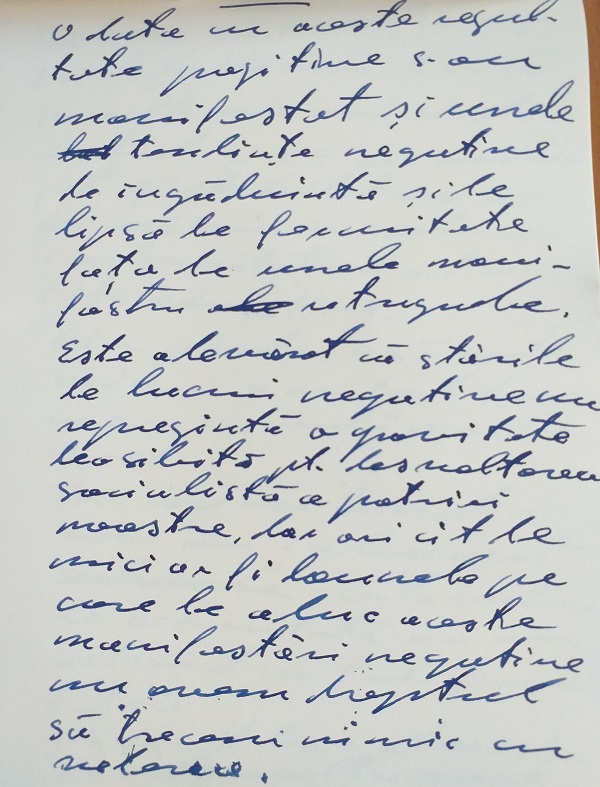 O dată cu aceste rezul-
tate pozitive s-au
manifestat și unele
tendințe negative
de îngăduință și de
lipsă de fermitate
față de unele mani-
festări retrograde.
Este adevărat că stările
de lucruri negative nu
reprezintă o gravitate
deosibită pt. dezvoltarea
socialistă a patriei
noastre, dar oricît de
mici ar fi daunele pe
care le aduc aceste
manifestări negative
nu avem dreptul
să trecem nimic cu
vederea.